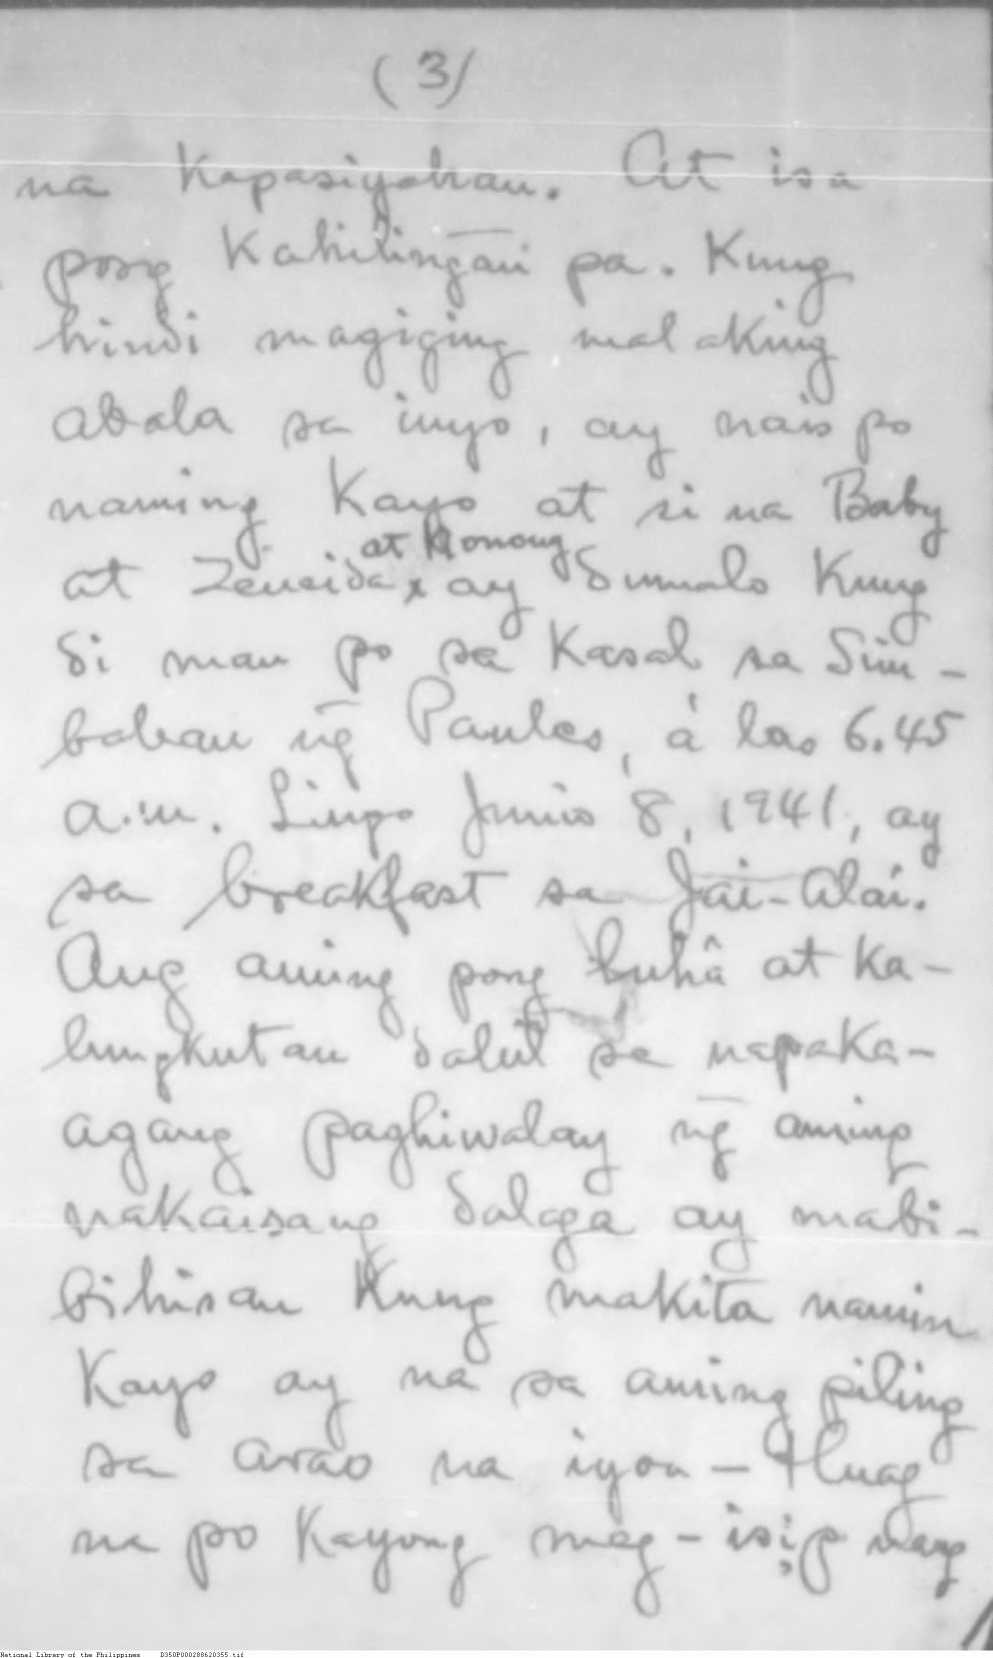 (3)
na kapasiyahan. At isa
pong Kahilin̄gan pa. Kung
hindi magiging malaking
abala sa inyo, ay nais po
naming Kayo at si na Baby
at Zeneida x at Nonong ay dumalo Kung
di man po sa Kasal sa Sim-
bahan n̄g Paules, á las 6.45
a.m. Lingo Junio 8, 1941, ay
sa breakfast sa Jai-Alai.
Ang aming pong luhâ at Ka-
lungkutan dalut sa napaka-
agang paghiwalay n̄g aming
nakaisang dalaga ay mabi-
bihisan Kung makita namin
Kayo ay na sa aming piling
sa arao na iyon - Huag
na po Kayong mag-isip nang
National Library of the Philippines D350P000288620355.tif